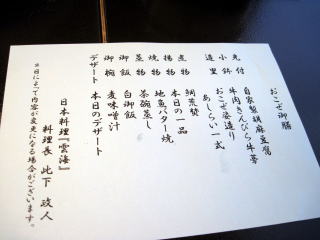 おこぜ御膳
先付　自家製胡麻豆腐
小鉢　牛肉きんぴら牛蒡
造里　おこぜ姿造り
あしらい一式
煮物　鯛荒焚
揚物　本日の一品
焼物　地魚バター焼
蒸物　茶碗蒸し
御飯　白御飯
御椀　麦味噌汁
デザート　本日のデザート
日本料理『雲海』
料理長　此下　政人
※日によって内容が変更になる場合がございます。